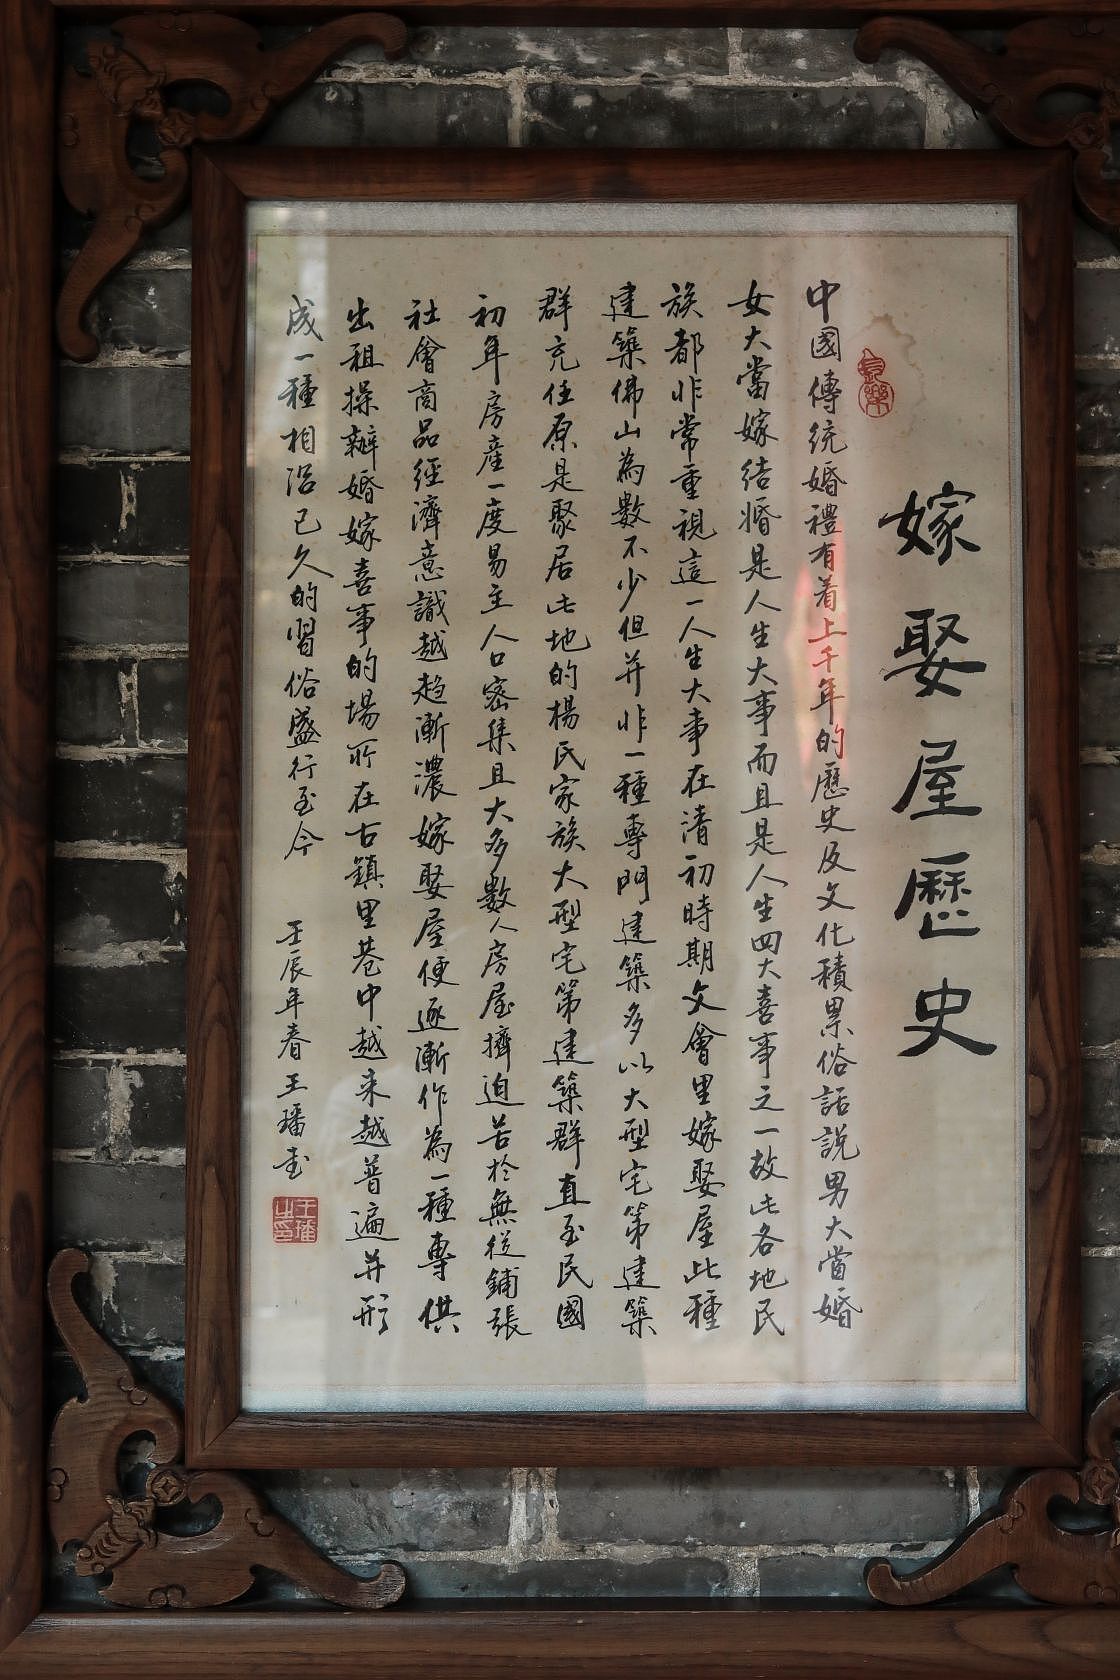 嫁娶屋歷史
中國傳統婚禮有着上千年的歷史及文化積累俗話說男大當婚
女大當嫁結婚是人生大事而且是人生四大喜事之一故此各地民
族都非常重視這一人生大事在清初時期文會里嫁娶屋此種
建築佛山為數不少但并非一種專門建築多以大型宅第建築
群充任原是聚居此地的楊氏家族大型宅第建築群直至民國
初年房產一度易主人口密集且大多數人房屋擠迫苦於無從鋪張
社會商品經濟意識越趋漸濃嫁娶屋便逐漸作為一種專供
出租操辦婚嫁喜事的場所在古鎮里巷中越来越普遍并形
成一種相沿已久的習俗盛行至今
壬辰年春王璠书
王璠之印